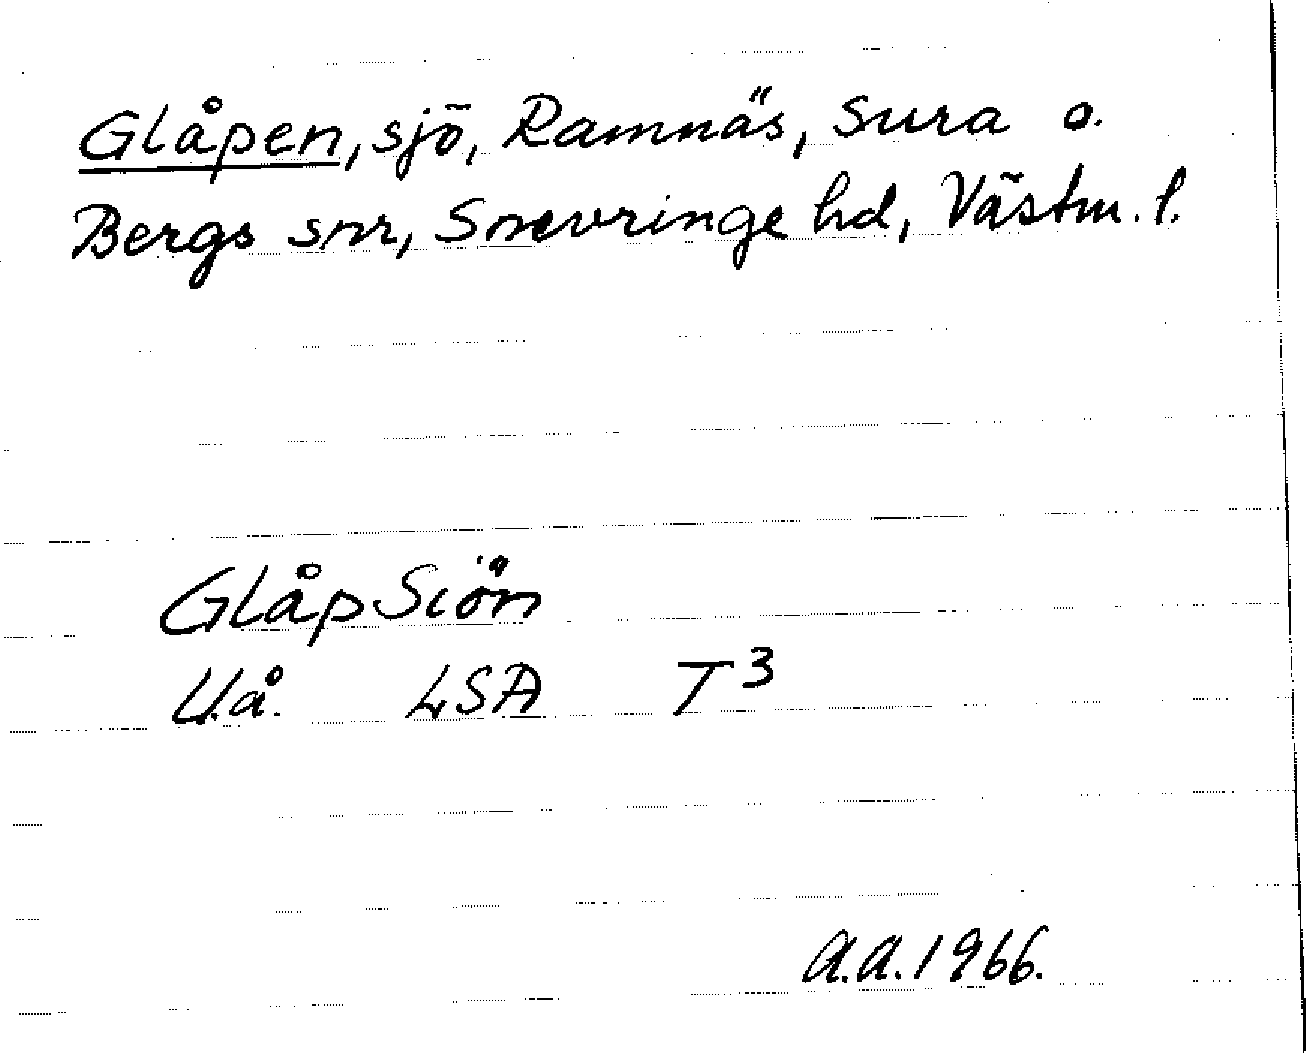 Glåpen, sjö, Ramnäs, Sura o.
Bergs snr, Snevringe hd, Västm. l.
Glåp Siön
U.å. LSA T3
A.A. 1966.